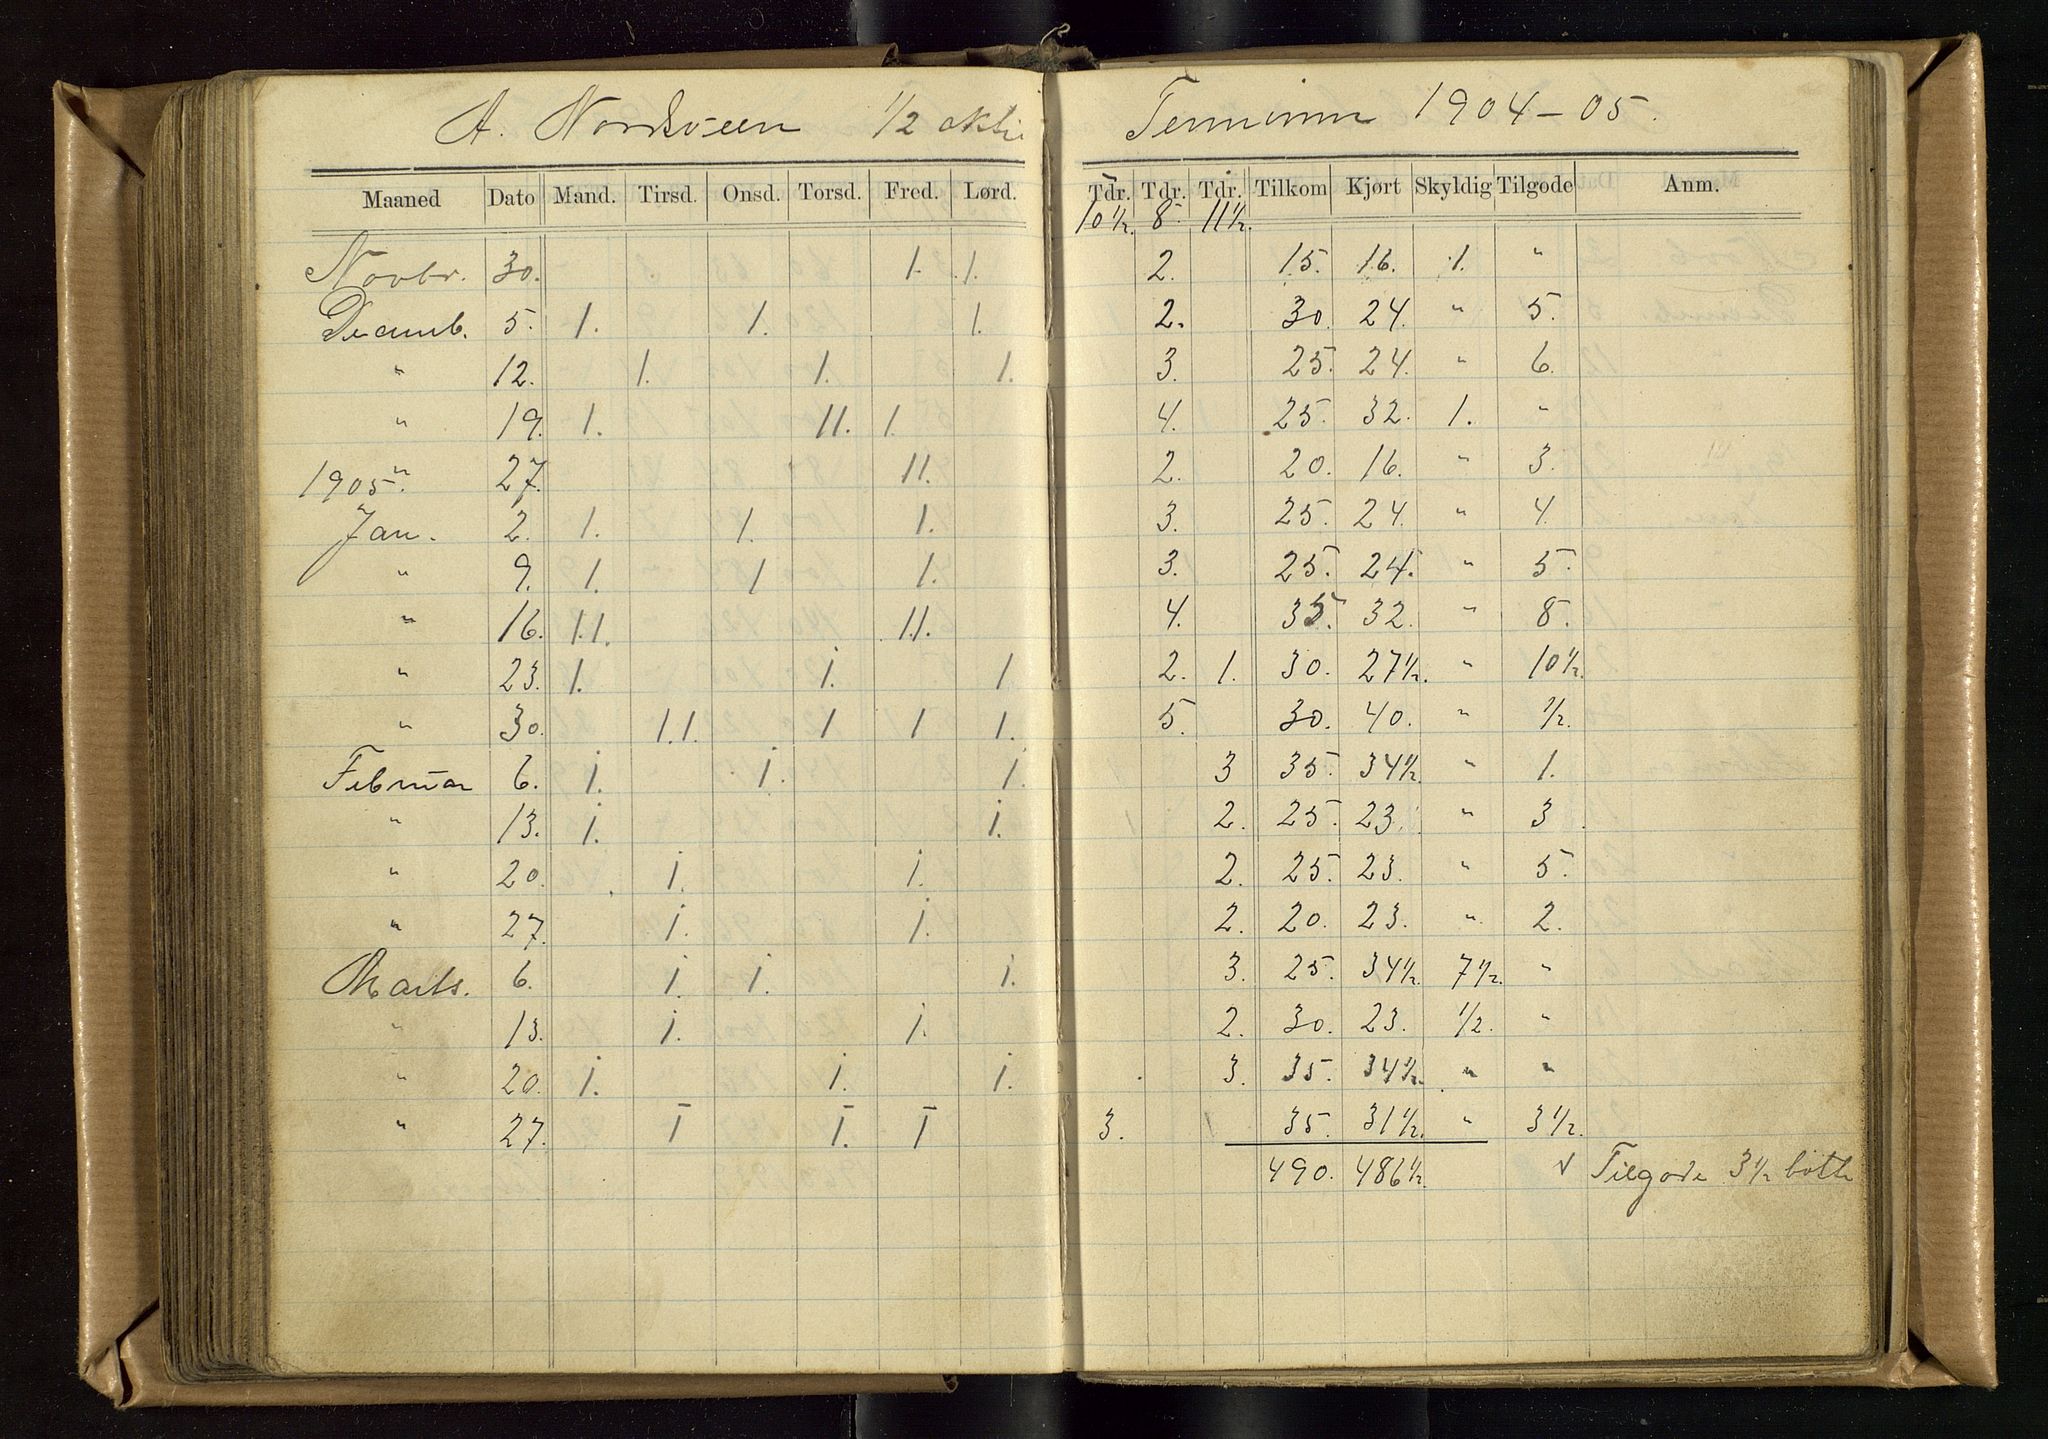 A. Nordsveen 1/2 aktie Terminen 1904-05.
Maaned Dato Mand. Tirsd. Onsd. Torsd. Fred. Lørd. Tdr. Tdr. Tdr. Tilkom Kjørt Skyldig Tilgode Anm.
10 1/2. 8. 11 1/2.
Novbr. 30. 1. 1. 2. 15. 16. 1. "
Decemb. 5. 1. 1. 1. 2. 30. 24. " 5.
" 12. 1. 1. 1. 3. 25. 24. " 6.
" 19. 1. 11. 1. 4. 25. 32. 1. "
" 27. 11. 2. 20. 16. " 3.
1905.
Jan. 2. 1. 1. 1. 3. 25. 24. " 4.
" 9. 1. 1 1. 3. 25. 24. " 5.
" 16. 1.1. 1.1. 4. 35. 32. " 8.
" 23. 1. 1. 1. 2. 1. 30. 27 1/2. " 10 1/2.
" 30. 1.1. 1 1 1. 5. 30. 40. " 1/2.
Februar 6. 1. 1. 1. 3 35. 34 1/2. " 1.
" 13. 1. 1. 2. 25. 23. " 3.
" 20. 1. 1. 2. 25. 23. " 5.
" 27. 1. 1. 2. 20. 23. " 2.
Marts. 6. 1. 1. 1. 3. 25. 34 1/2. 7 1/2. "
" 13. 1. 1. 2. 30. 23. 1/2. "
" 20. 1. 1. 1. 3. 35. 34 1/2. " "
" 27. 1 1. 1 3. 35. 31 1/2. " 3 1/2.
490. 486 1/2. √ Tilgode 3 1/2 bøtte